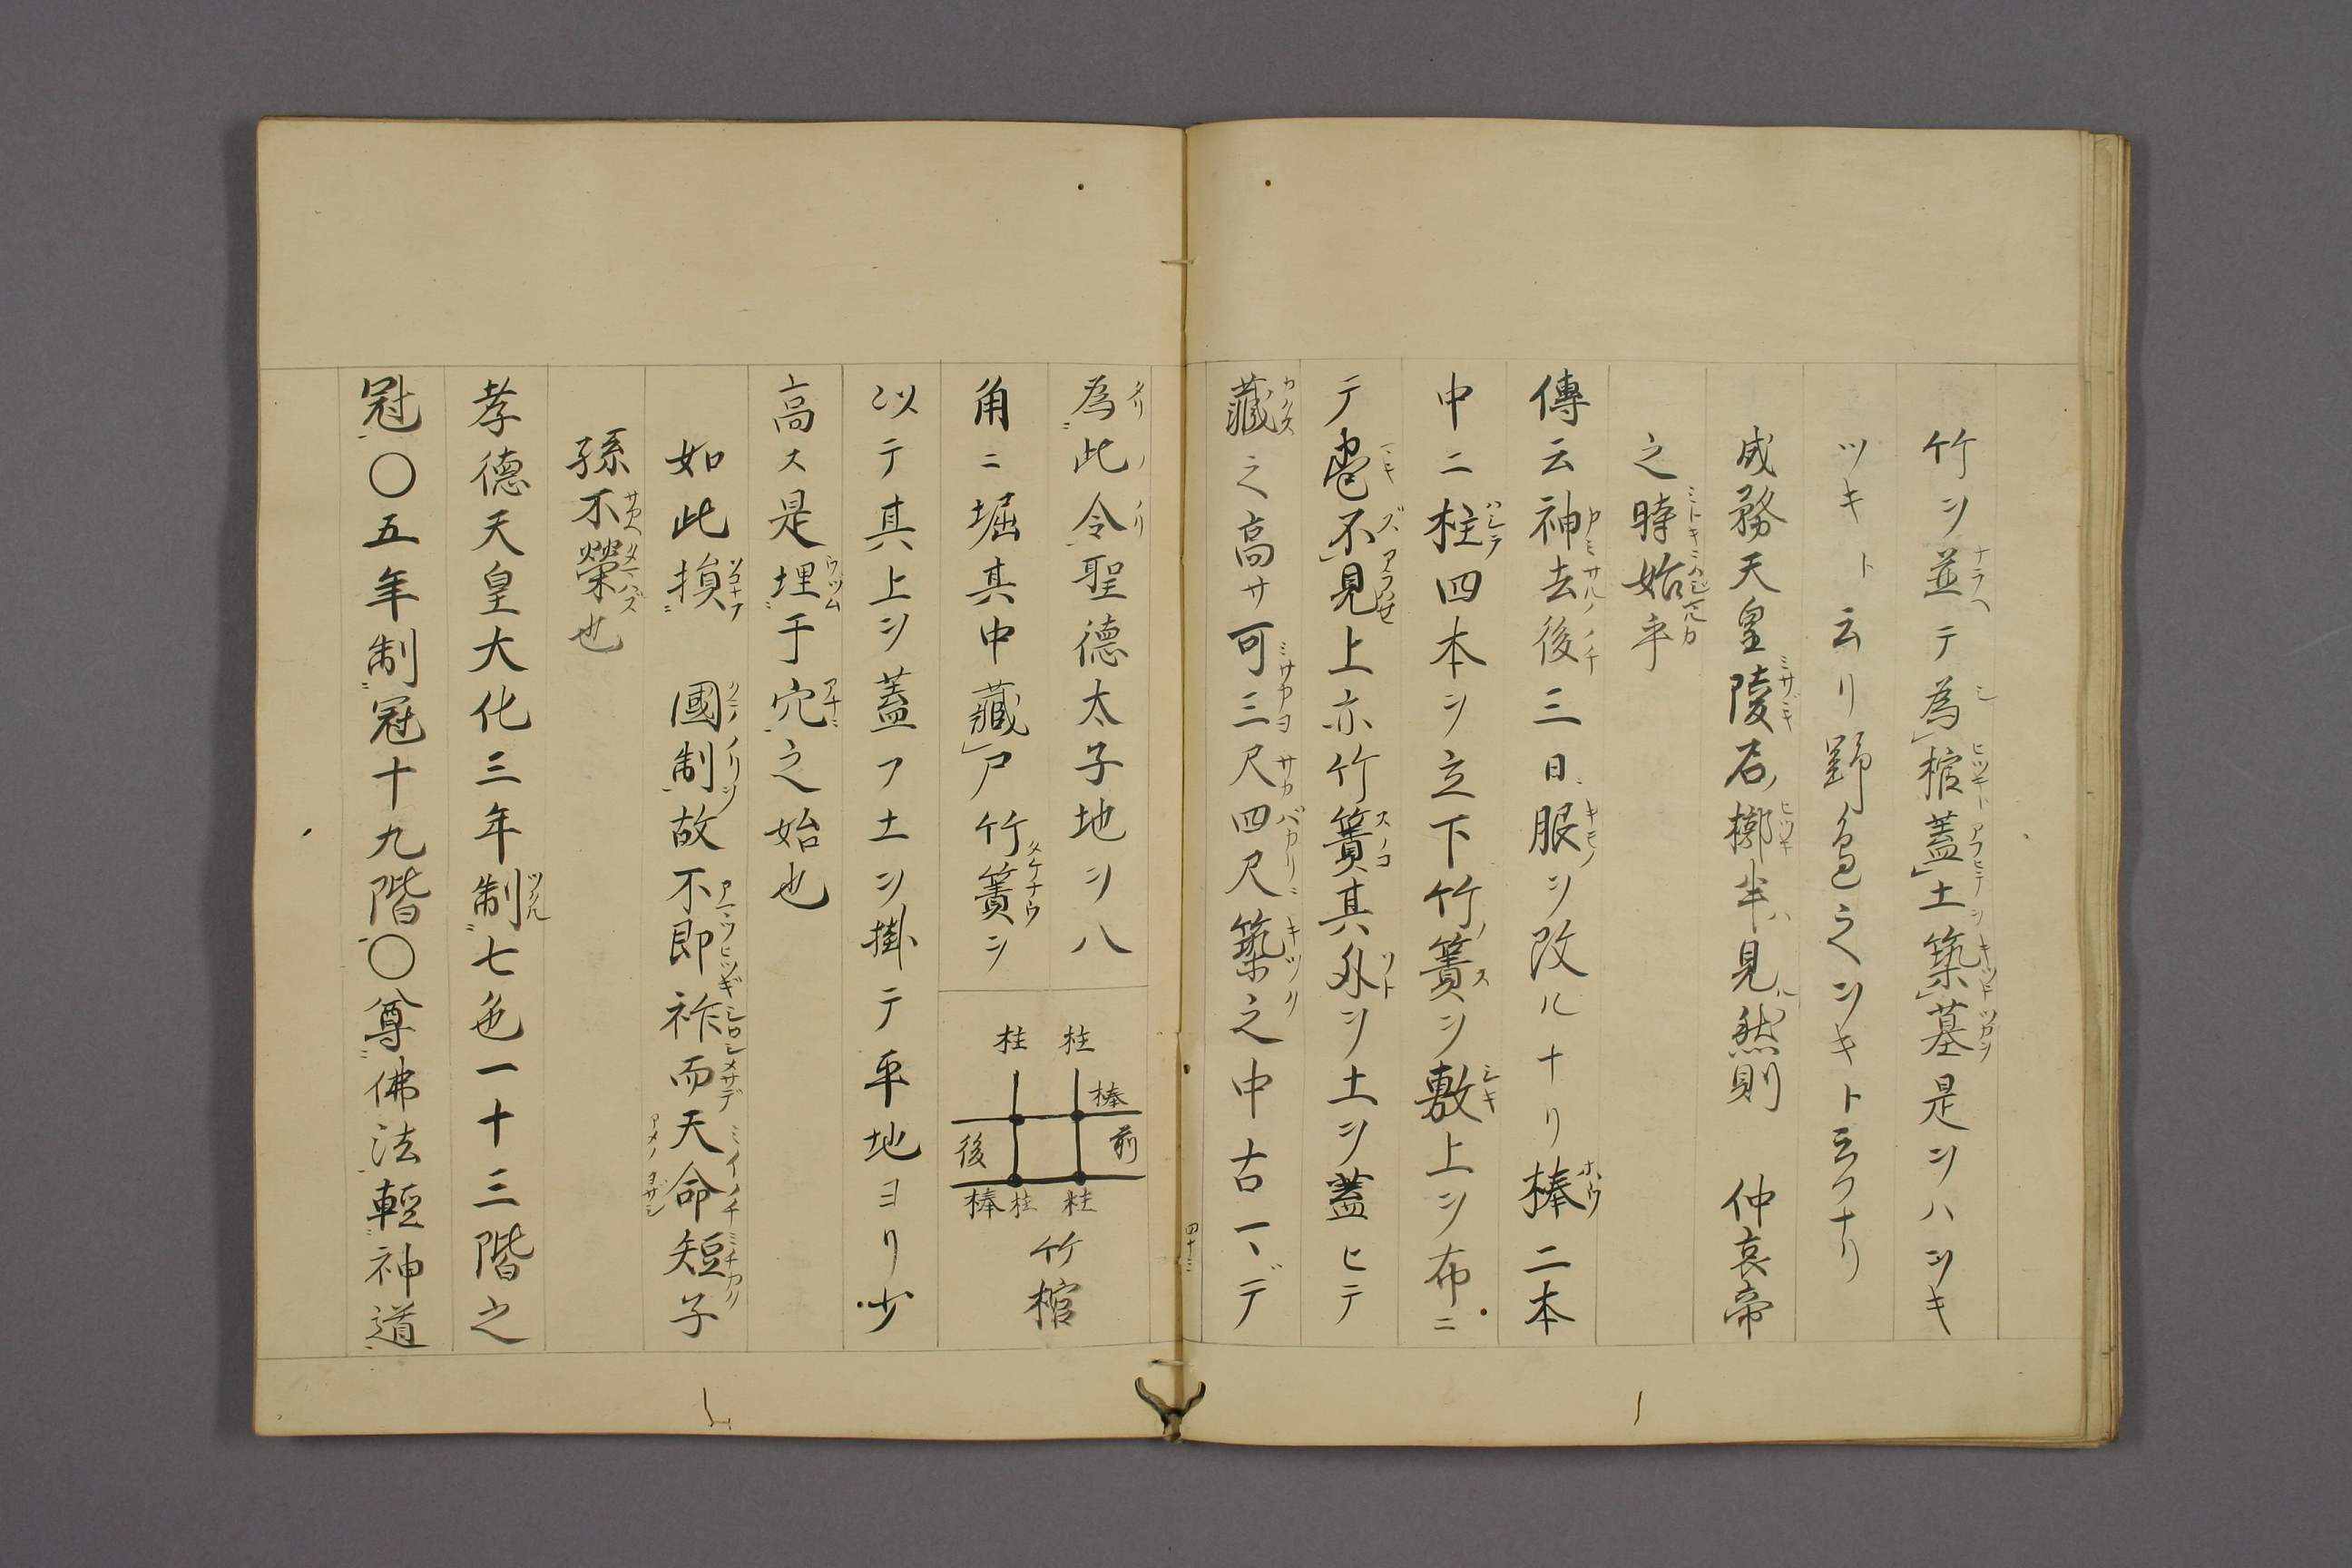 竹ヲ並テ為棺蓋土築墓是ヲハツキ
ツキト云リ野邉之ヲキト云フナリ
成務天皇陵石槨半見然則 仲哀帝
之時始乎
傳云神去後三日服ヲ改ルナリ棒二本
中ニ柱四本ヲ立下竹簀ヲ敷上ヲ布ニ
テ巻不見上亦竹簀其外ヲ土ヲ蓋ヒテ
藏之高サ可三尺四尺築之中古マデ
四十三
為此令聖德太子地ヲ八
角ニ堀其中藏尸竹簀ヲ
柱 柱
棒
後 前
棒 柱 柱
竹棺
以テ其上ヲ蓋フ土ヲ掛テ平地ヨリ少
高ス是埋于穴之始也
如此損 國制故不即祚而天命短子
孫不榮也
孝德天皇大化三年制七色一十三階之
冠〇五年制冠十九階〇尊佛法輕神道